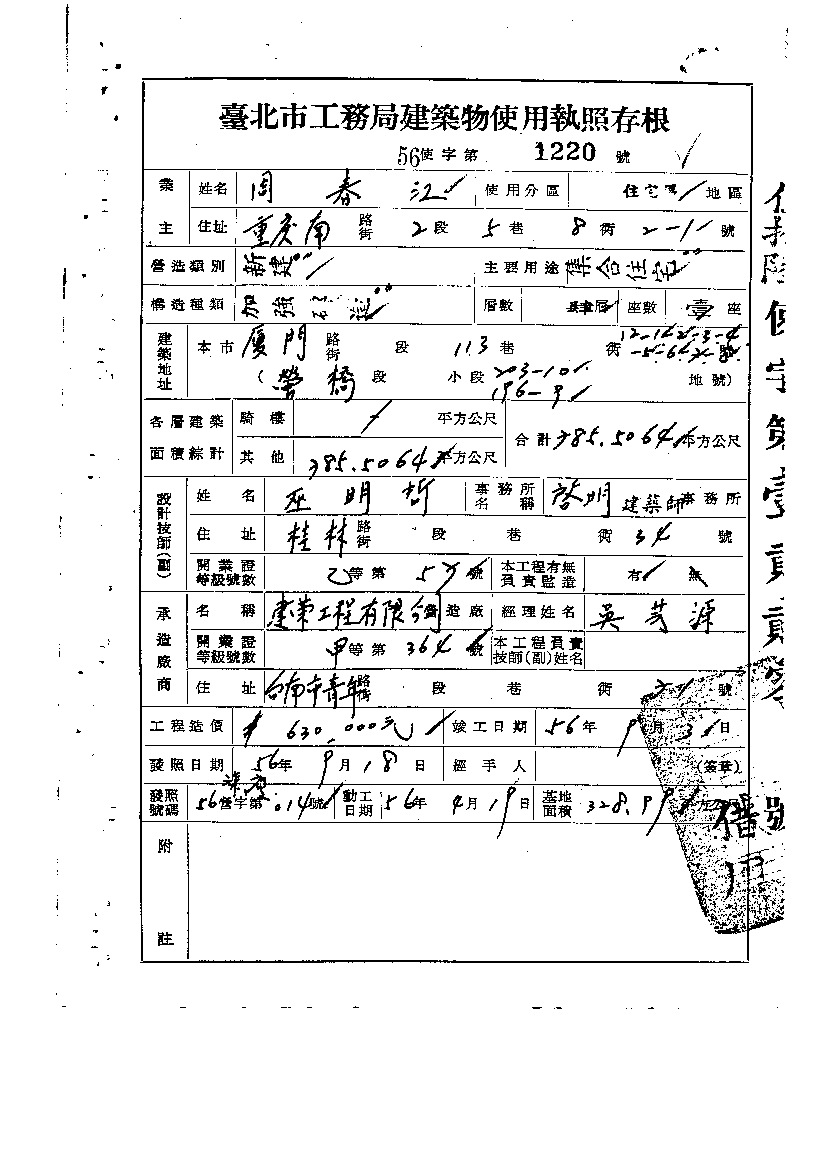 臺北市工務局建築物使用執照存根
56使字第 1220 號
業主 姓名 周春江 使用分區 住宅區 地區
住址 重慶南 路街 2段 5巷 8衖 2-1號
營造類別 新建 主要用途 集合住宅
構造種類 加強磚造 層數 座數 壹座
建築地址 本市 廈門 路街 段 113巷 衖
(螢橋段 小段 203-10 196-9 地號)
各層建築面積綜計 騎樓 平方公尺 合計 385.5064平方公尺
其他 385.5064平方公尺
設計技師(副) 姓名 巫明哲 事務所名稱 啓明建築師事務所
住址 桂林 路街 段 巷 衖 34號
開業證等級號數 乙等第 號 本工程有無負責監造 有 無
承造廠商 名稱 建業工程有限公司 營造廠 經理姓名 吳芳源
開業證等級號數 甲等第 364號 本工程負責技師(副)姓名
住址 台南市青年 路街 段 巷 衖 號
工程造價 630,000元 竣工日期 56年 9月 日
發照日期 56年 9月 18日 經手人 (簽章)
發照號碼 56營字第 014號 動工日期 56年 4月 19日 基地面積 328.99
附註
使字第壹貳貳 號
借